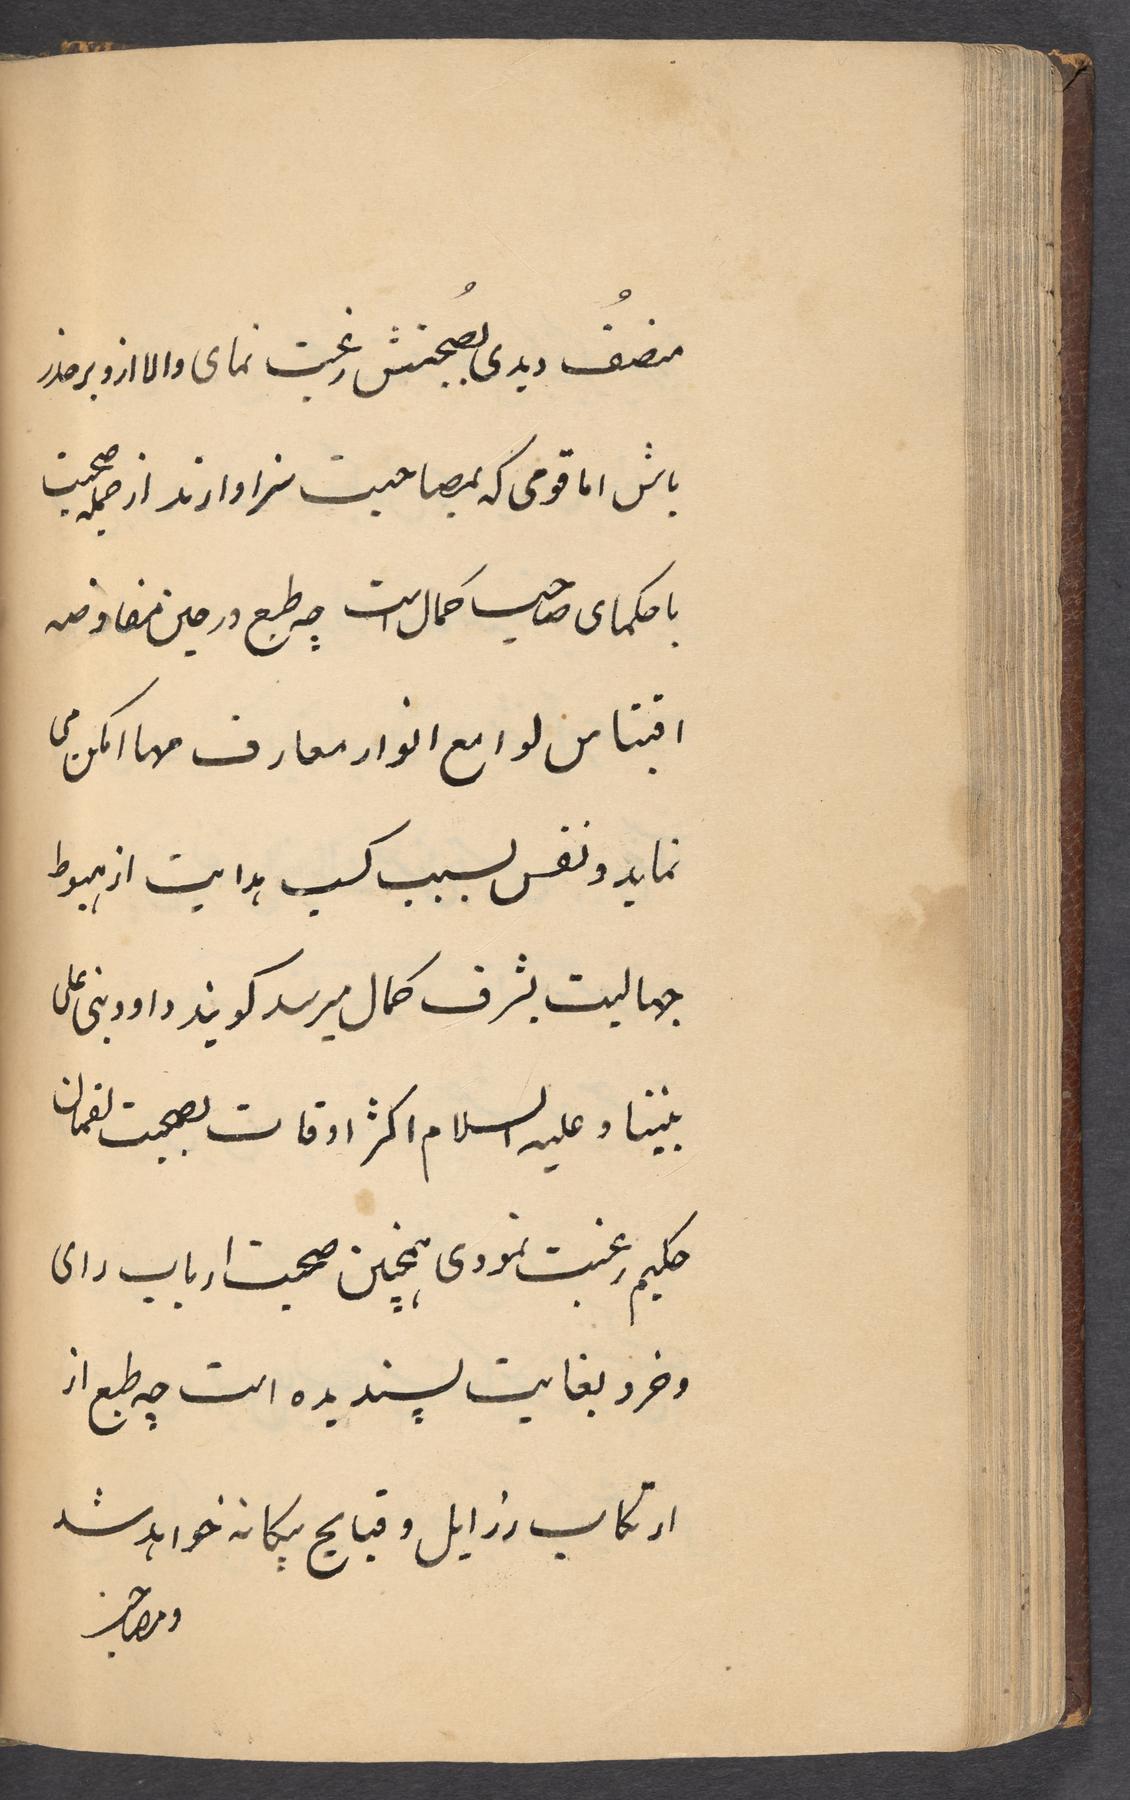 منصف دیدی بصحبتش رغبت نمای والا ازو برحذر
باش اما قومی که بمصاحبت سزاوارند از جمله صحبت
با حکمای صاحب کمال است چه طبع در حین مفاوضه
اقتباس لوامع انوار معارف مهما امکن می
نماید و نفس بسبب کسب هدایت از هبوط
جهالیت بشرف کمال میرسد کویند داود نبی علی
نبینا و علیه السلام اکثر اوقات بصحبت لقمان
حکیم رغبت نمودی همچنین صحبت ارباب رای
وخرد بغایت پسندیده است چه طبع از
ارتکاب رزایل و قبایح بیکانه خواهد شد
ومصاحبت